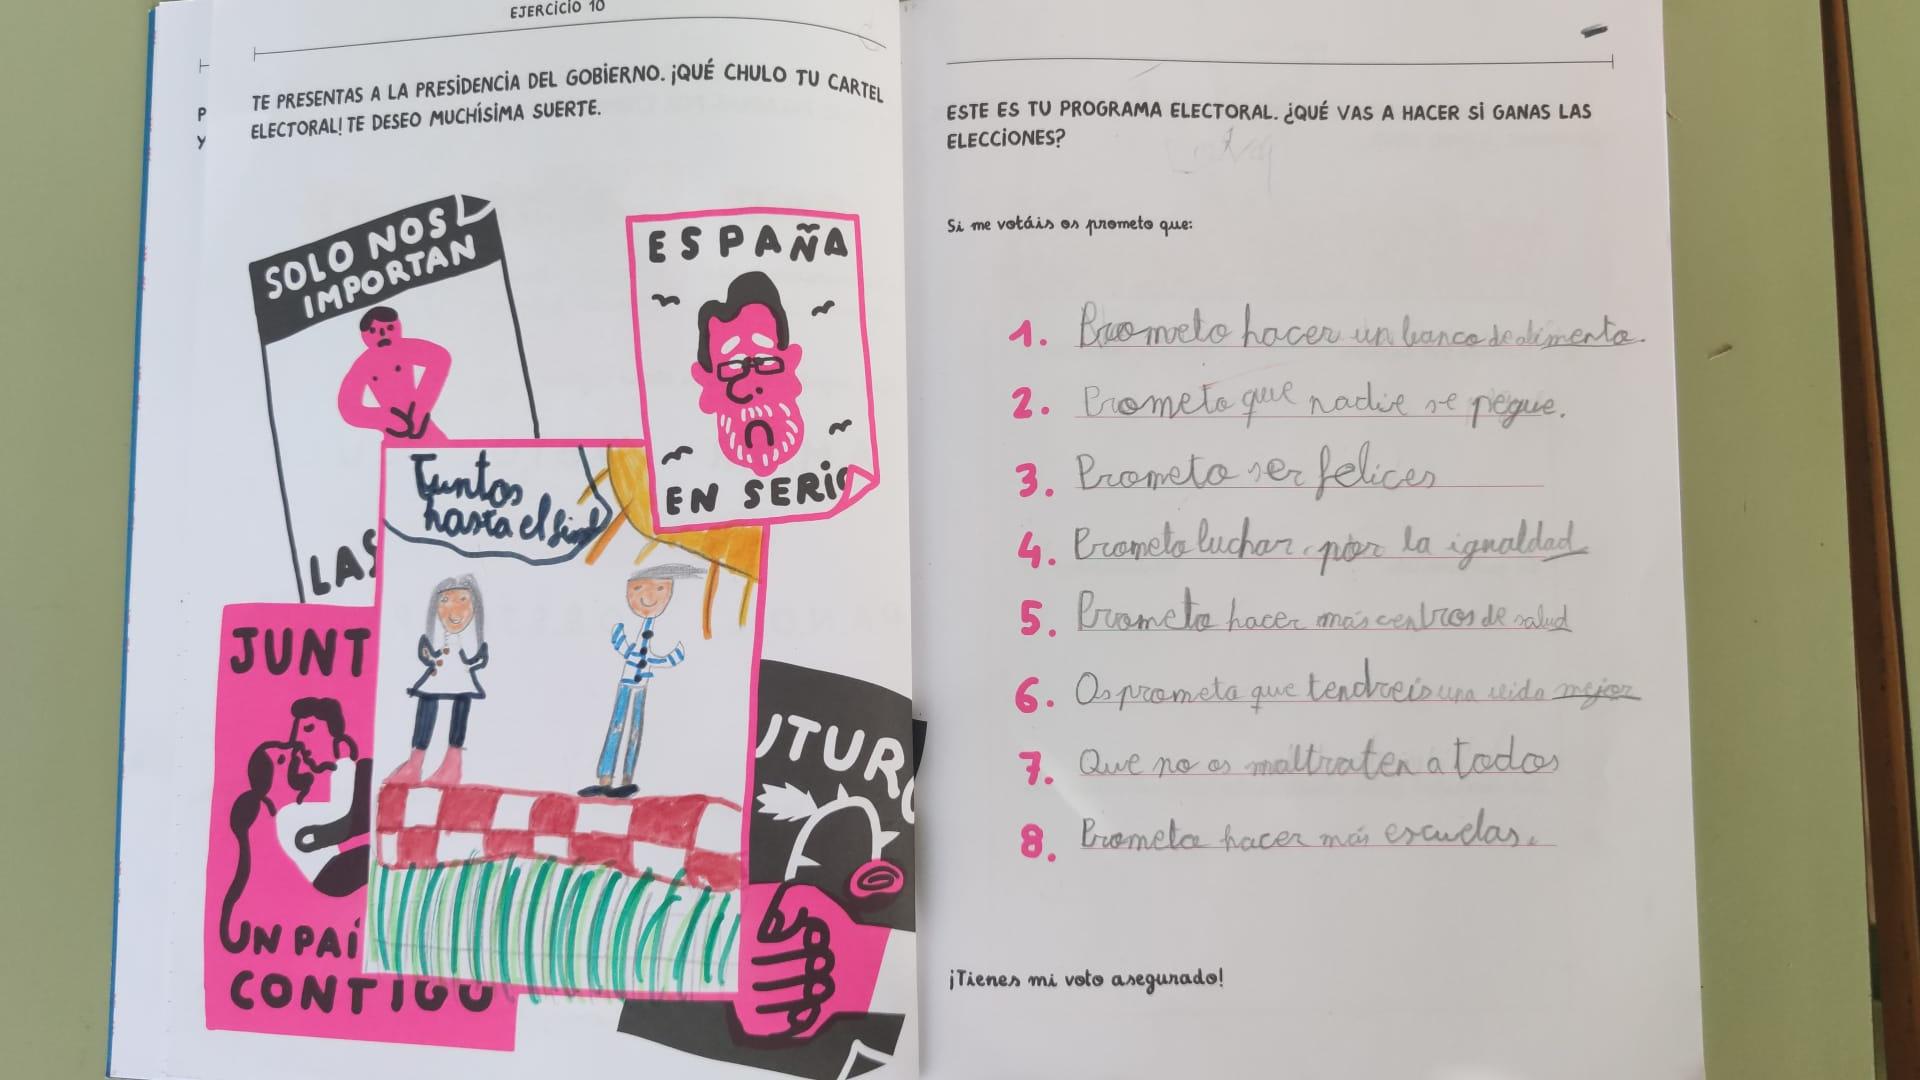 EJERCICIO 10
TE PRESENTAS A LA PRESIDENCIA DEL GOBIERNO. ¡QUÉ CHULO TU CARTEL
ELECTORAL! TE DESEO MUCHÍSIMA SUERTE.
P
Y
SOLO NOS
IMPORTAN
LAS
ESPAÑA
EN SERIO
Juntos
hasta el final
JUNT
UN PAÍ
CONTIGO
UTURO
ESTE ES TU PROGRAMA ELECTORAL. ¿QUÉ VAS A HACER SI GANAS LAS
ELECCIONES?
Si me votáis os prometo que:
1. Prometo hacer un banco de alimento.
2. Prometo que nadie se pegue.
3. Prometo ser felices
4. Prometo luchar por la igualdad
5. Prometo hacer más centros de salud
6. Os prometo que tendreís una vida mejor
7. Que no os maltraten a todos
8. Prometo hacer más escuelas.
¡Tienes mi voto asegurado!